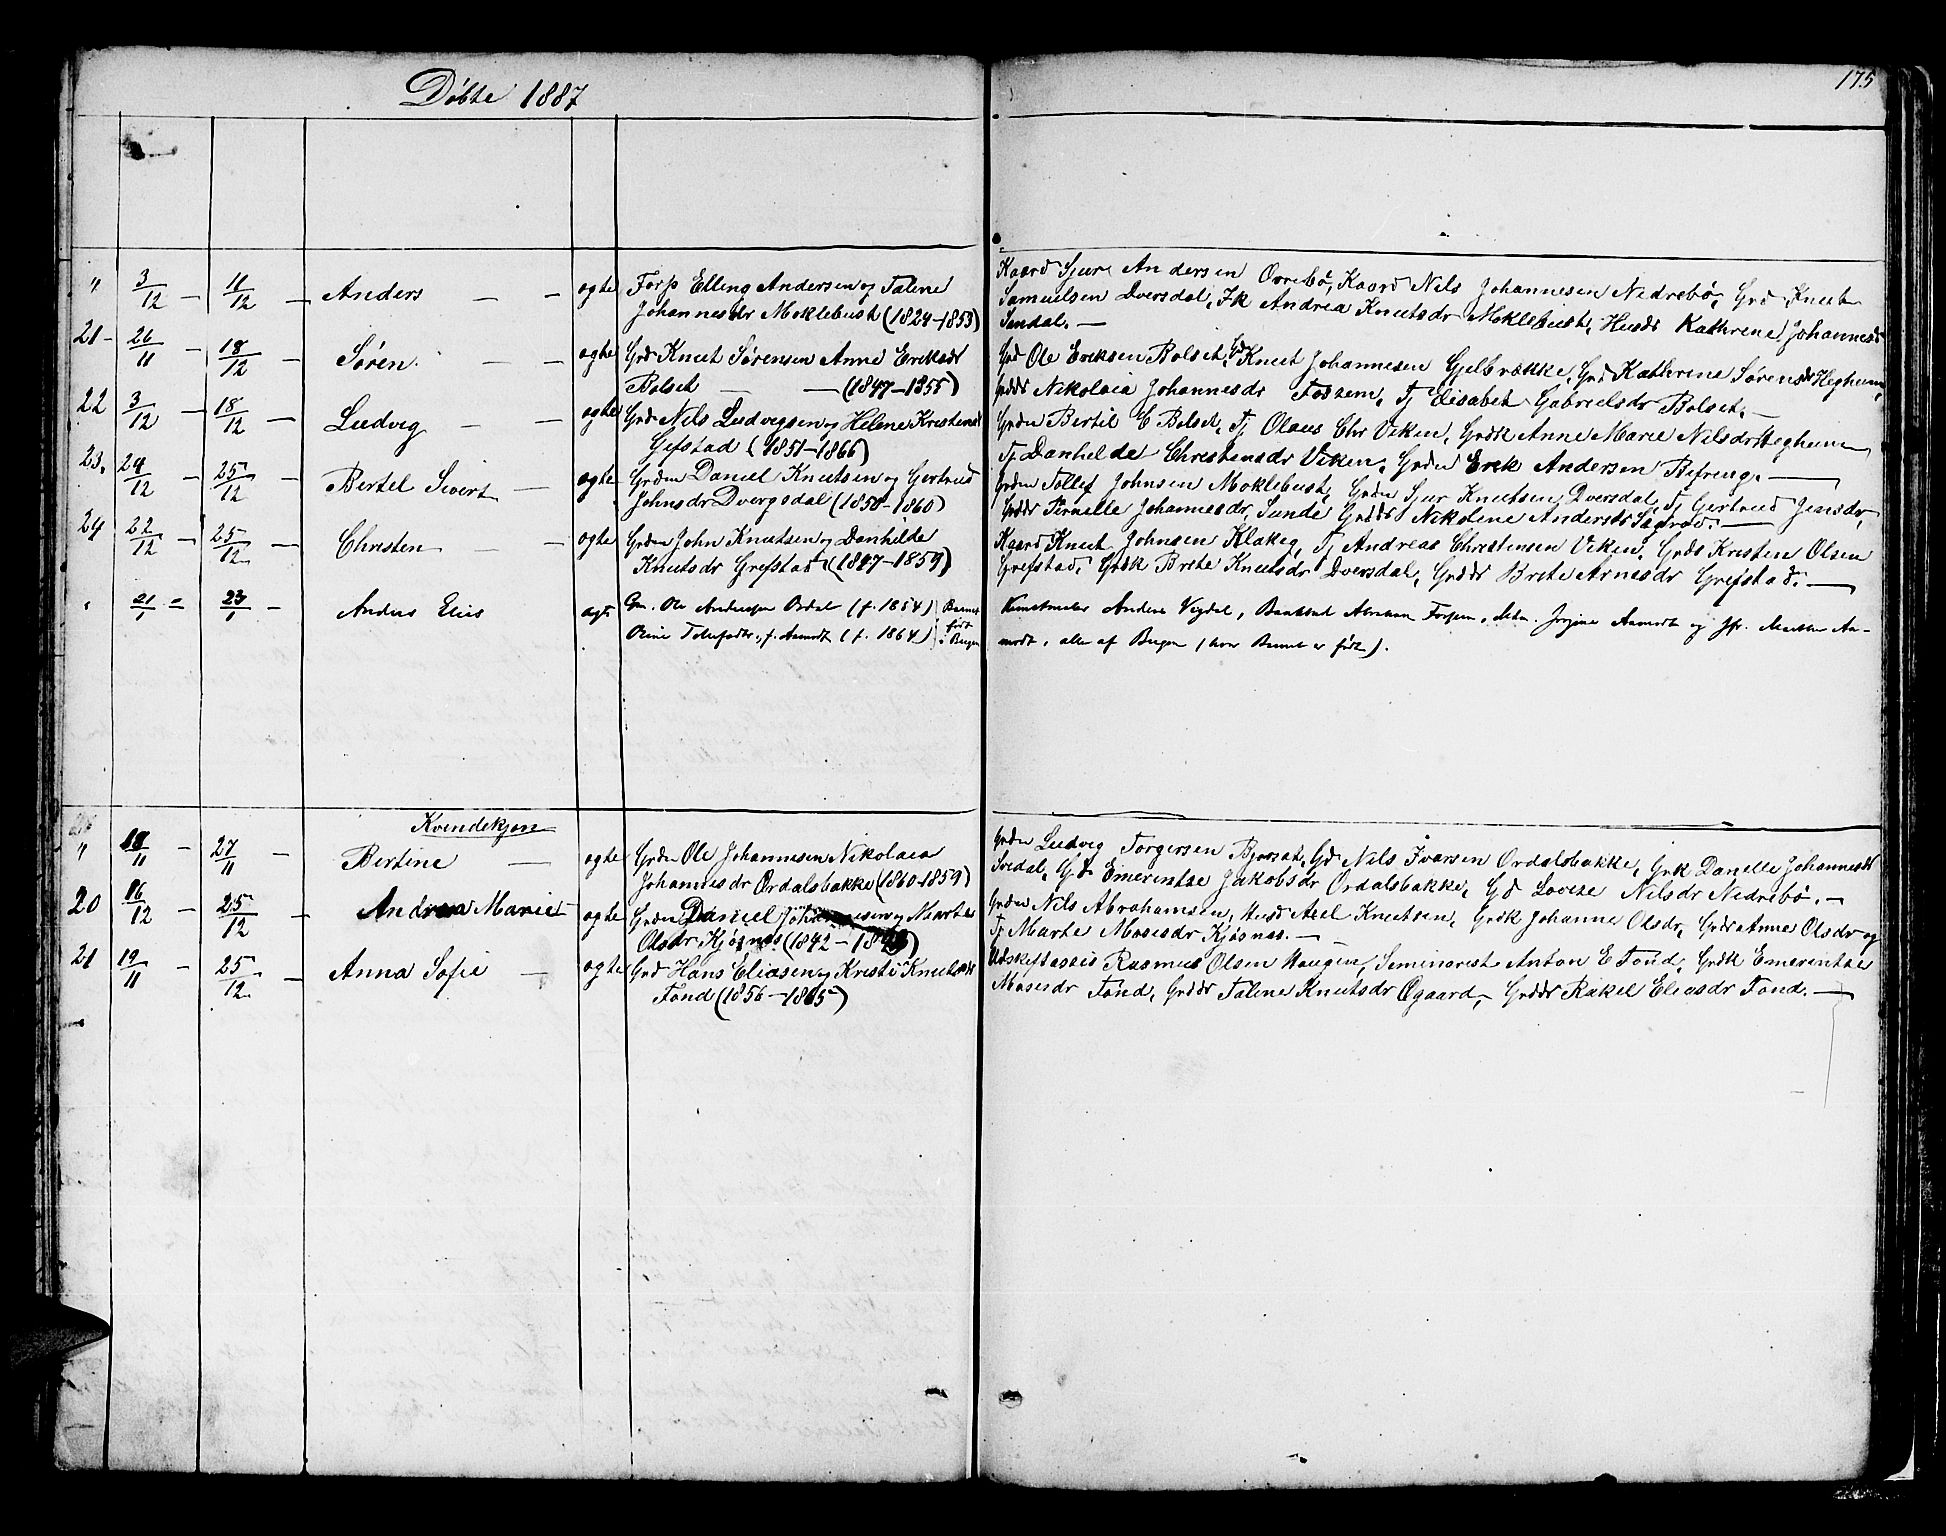 Døbte 1887
175
" 3/12 — 11/12 — Anders — — ægte Forp Elling Andersen og Taline
Johannesdr Moklebust (1824-1853)
Kaard Sjur Andersen Ovrebø, Kaard Nils Johannesen Nedrebø, Grd Knut
Samuelsen Dversdal, Fk Andrea Knutsdr Moklebust, Husds Kathrine Johannesdr
Sundal. —
21- 26/11 — 18/12 — Søren. — — ægte Grd Knut Sørensen Anne Eriksdr
Bolset — — (1847-1855)
Grd Ole Eriksen Bolset, Grd Knut Johannesen Gjelbrække, Grd Kathrine Sørensdr Heghum,
Grdds Nikolaia Johannesdr Fossem, Tj Elisabet Gabrielsdr Bolset. —
22 3/12 — 18/12 — Ludvig — — ægte Grd Nils Ludvigsen og Helene Kristensdr
Gjefstad (1851-1866)
Grdm Bertil E Bolset, Tj Olaus Chr Viken, Grdk Anne Marie Nilsdr Heghum
Tj Danhilde Christensdr Viken, Grdm Erik Andersen Befring. —
23. 24/12 — 25/12 — Bertel Sivert — ægte Grdm Daniel Knutsen og Gertrud
Johnsdr Dvergsdal (1850-1860)
Grdm Tollef Johnsen Moklebust, Grdm Sjur Knutsen Dversdal, Tj Gertrud Jensdr,
Grdds Pernille Johannesdr, Sunde Grdds Nikoline Andersdr Sægrov. —
24 22/12 — 25/12 — Christen — — ægte Grdm John Knutsen og Danhilde
Knutsdr Grefstad (1847-1859)
Kaard Knut Johnsen Klakeg, Tj Andreas Christensen Viken, Grds Kristen Olsen
Grefstad, Grdk Brite Knutsdr Dversdal, Grdds Brite Arnesdr Grefstad. —
" 21/1 = 23/1 — Anders Elias ægte Gm. Ole Andersen Ordal (f. 1854)
Oline Tollefsdtr., f. Aamodt (f. 1864) Barnet født i Bergen
Anders Vegdal, Abraham Forseen, Jørgine Aamodt og Jfr. Aa-
modt, alle af Bergen (hvor Barnet er født).
Kvindekjøn
" 18/11 — 27/11 — Bertine — ægte Grdm Ole Johannesen Nikolaia
Johannesdr Ordalsbakke (1860-1859)
Grdm Ludvig Torgersen Bjorset, Gd Nils Ivarsen Ordalsbakke, Grk Danielle Johannesdr
Svidal, Gd Emerentse Jakobsdr Ordalsbakke, Gd Lovise Nilsdr Nedrebø. —
20 16/12 — 25/12 — Andrea Marie ægte Grdm Daniel og Marte
Olsdr Kjøsnes (1842 —
Grdm Nils Abrahamsen, Husd Axel Knutsen, Grdk Johanne Olsdr, Grds Anne Olsdr og
Tj Marte Mosesdr Kjøsnes. —
21 19/11 — 25/12 — Anna Sofie — ægte Grd Hans Eliasen og Kristi Knutsdr
Fond (1856-1865)
Rasmus Olsen Haugen, Seminarist Anton E Fond, Grdk Emerentse
Mosesdr Fond, Grdds Taline Knutsdr Øgaard, Grdds Rakel Eliasdr Fond. —